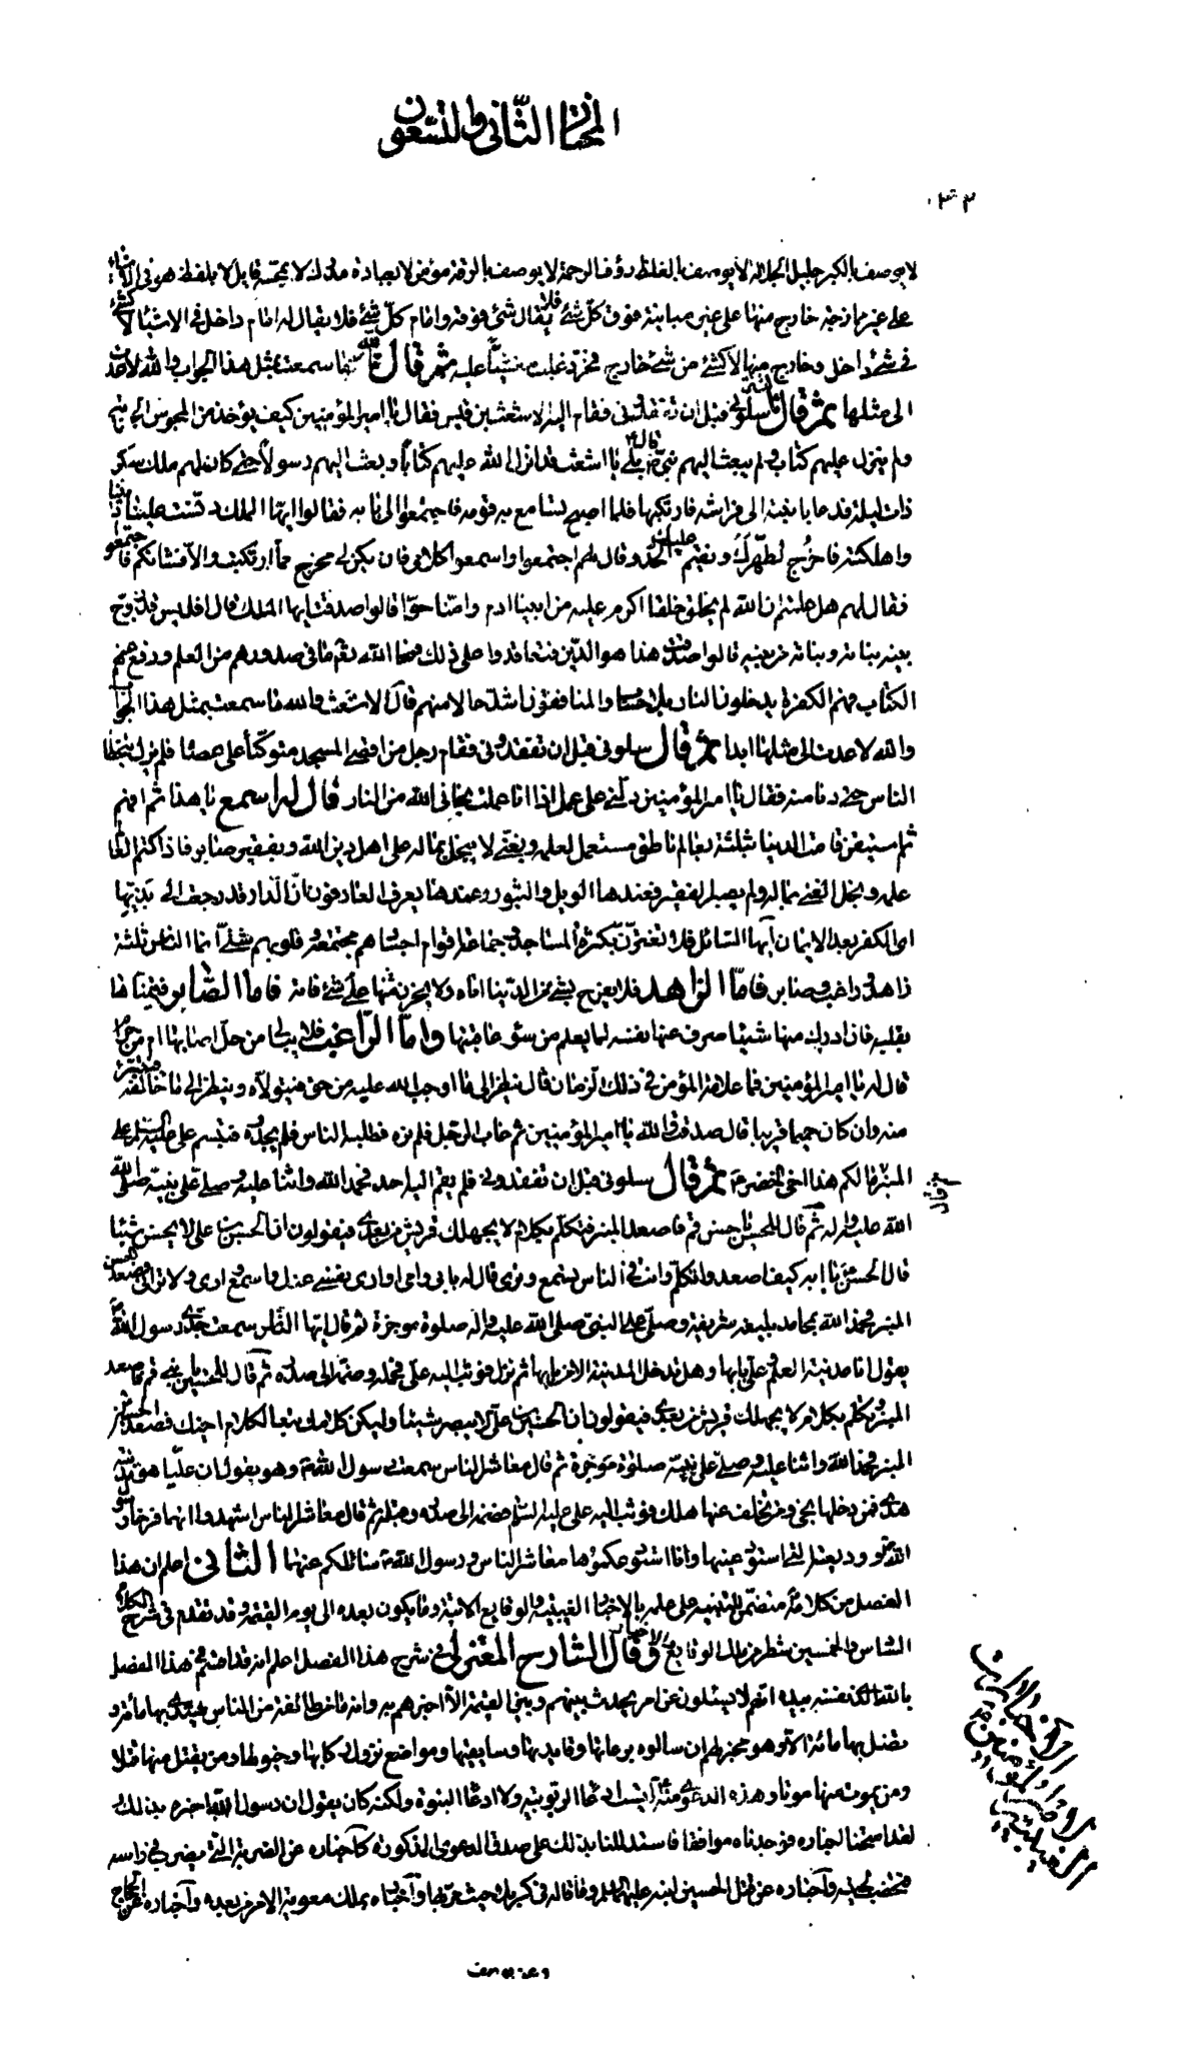 المختار الثاني والتسعون
لا يوصف بالكبر جليل الجلالة لا يوصف بالغلظ رؤف الرحمة لا يوصف بالرقة مؤمن لا بعبادة مدرك لا بمجسة قايل لا بلفظ هو في الاشياء
على غير ممازجة خارج منها على غير مباينة فوق كل شئ فلا يقال شئ فوقه وامام كل شئ فلا يقال له امام داخل في الاشياء لا كشئ
في شئ داخل وخارج منها لا كشئ من شئ خارج فخر ذعلب مغشيا عليه ثم قال تالله ما سمعت بمثل هذا الجواب والله لا عدت
الى مثلها ثم قال سلوني قبل ان تفقدوني فقام اليه الاشعث بن قيس فقال يا امير المؤمنين كيف يؤخذ من المجوس الجزية
ولم ينزل عليهم كتاب ولم يبعث اليهم نبي قال بلى يا اشعث قد انزل الله عليهم كتابا وبعث اليهم رسولا حتى كان لهم ملك سكر
ذات ليلة فدعا بابنته الى فراشه فارتكبها فلما اصبح تسامع به قومه فاجتمعوا الى بابه فقالوا ايها الملك دنست علينا ديننا
واهلكته فاخرج نطهرك ونقيم عليك الحد وقال لهم اجتمعوا واسمعوا كلامي فان يكن لي مخرج مما ارتكبت والا فشانكم فاجتمعوا
فقال لهم هل علمتم ان الله لم يخلق خلقا اكرم عليه من ابينا ادم وامنا حوا قالوا صدقت ايها الملك قال افليس قد زوج
بنيه بناته وبناته من بنيه قالوا صدقت هذا هو الدين فتعاقدوا على ذلك فمحا الله ما في صدورهم من العلم ورفع عنهم
الكتاب فهم الكفرة يدخلون النار بلا حساب والمنافقون اشد حالا منهم قال الاشعث والله ما سمعت بمثل هذا الجواب
والله لا عدت الى مثلها ابدا ثم قال سلوني قبل ان تفقدوني فقام رجل من اقصى المسجد متوكئا على عصا فلم يزل يتخطا
الناس حتى دنا منه فقال يا امير المؤمنين دلني على عمل اذا انا عملته نجاني الله من النار قال له اسمع يا هذا ثم افهم
ثم استيقن قامت الدنيا بثلثة بعالم ناطق مستعمل لعلمه وبغني لا يبخل بماله على اهل دين الله وبفقير صابر فاذا كتم العالم
علمه وبخل الغني بماله ولم يصبر الفقير فعندها الويل والثبور وعندها يعرف العارفون ان الدار قد رجعت الى بديها
اي الكفر بعد الايمان ايها السائل فلا تغترن بكثرة المساجد وجماعة اقوام اجسادهم مجتمعة وقلوبهم شتى انما الناس ثلثة
زاهد وراغب وصابر فاما الزاهد فلا يفرح بشئ من الدنيا اتاه ولا يحزن منها على شئ فاته فاما الصابر فيتمناها
بقلبه فان ادرك منها شيئا صرف عنها نفسه لما يعلم من سوء عاقبتها واما الراغب فلا يبالي من حل اصابها ام من حرام
قال له يا امير المؤمنين فما علامة المؤمن في ذلك الزمان قال ينظر الى ما اوجب الله عليه من حق فيتولاه وينظر الى ما خالفه فيتبرء
منه وان كان حميما قريبا قال صدقت والله يا امير المؤمنين ثم غاب الرجل فلم نره فطلبه الناس فلم يجدوه فتبسم على عليه السلام على
المنبر ثم قال مالكم هذا اخي الخضر ثم قال سلوني قبل ان تفقدوني فلم يقم اليه احد فحمد الله واثنا عليه وصلى على نبيه صلى الله
الله عليه واله ثم قال للحسن يا حسن قم فاصعد المنبر فتكلم بكلام لا يجهلك قريش من بعدي فيقولون ان الحسن بن علي لا يحسن شيئا
قال الحسن يا ابه كيف اصعد واتكلم وانت في الناس تسمع وترى قال له بابي وامي اواري نفسي عنك واسمع وارى ولا تراني فصعد الحسن
المنبر فحمد الله بمحامد بليغة شريفة وصلى على النبي صلى الله عليه واله صلوة موجزة ثم قال ايها الناس سمعت جدي رسول الله
يقول انا مدينة العلم وعلي بابها وهل تدخل المدينة الا من بابها ثم نزل فوثب اليه علي فحمله وضمه الى صدره ثم قال للحسين يا بني قم فاصعد
المنبر وتكلم بكلام لا يجهلك قريش من بعدي فيقولون ان الحسين بن علي لا يبصر شيئا وليكن كلامك تبعا لكلام اخيك فصعد الحسين
المنبر فحمد الله واثنا عليه وصلى على نبيه صلوة موجزة ثم قال معاشر الناس سمعت رسول الله وهو يقول ان عليا هو مدينة
هدى فمن دخلها نجى ومن تخلف عنها هلك فوثب اليه علي عليه السلام فضمه الى صدره وقبله ثم قال معاشر الناس اشهدوا انهما فرخا رسول
الله ووديعته التي استودعنيها وانا استودعكموها معاشر الناس ورسول الله سائلكم عنهما الثاني اعلم ان هذا
الفصل من كلامه متضمن للتنبيه على علمه بالاخبار الغيبية والوقايع الاتية وما يكون بعده الى يوم القيمة وقد تقدم في شرح الكلام
السادس والخمسين شطر من تلك الوقايع والاخبار وقال الشارح المعتزلي في شرح هذا الفصل اعلم انه قد اقسم في هذا الفصل
بالله الذي نفسه بيده انهم لا يسئلون عن امر يحدث بينهم وبين القيمة الا اخبرهم به وانه ما من طائفة من الناس يهتدي بها مائة و
تضل بها مائة الا وهو مخبر لهم ان سالوه برعاتها وقايديها وسايقيها ومواضع نزول ركابها وخيولها ومن يقتل منها قتلا
ومن يموت منها موتا وهذه الدعوى منه ليست ادعاء الربوبية ولا ادعاء النبوة ولكنه كان يقول ان رسول الله اخبره بذلك
لقد امتحنا اخباره فوجدناه موافقا فاستدللنا بذلك على صدق الدعوى المذكورة كاخباره عن الضربة التي يضرب في راسه
فتخضب لحيته واخباره عن قتل الحسين ابنه عليهما السلام وما قاله في كربلا حيث مر بها واخباره بملك معوية الامر من بعده واخباره عن الحجاج
وعن يوسف